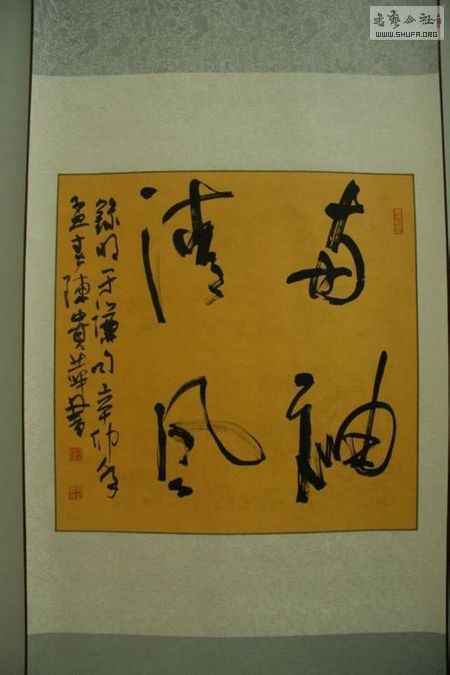 两袖
清风
録明于谦句辛卯年
孟春陳貴華書
書藝公社
WWW.SHUFA.ORG